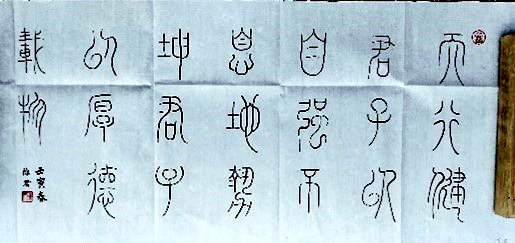 天行健
君子以
自强不
息地勢
坤君子
以厚德
載物
壬寅春